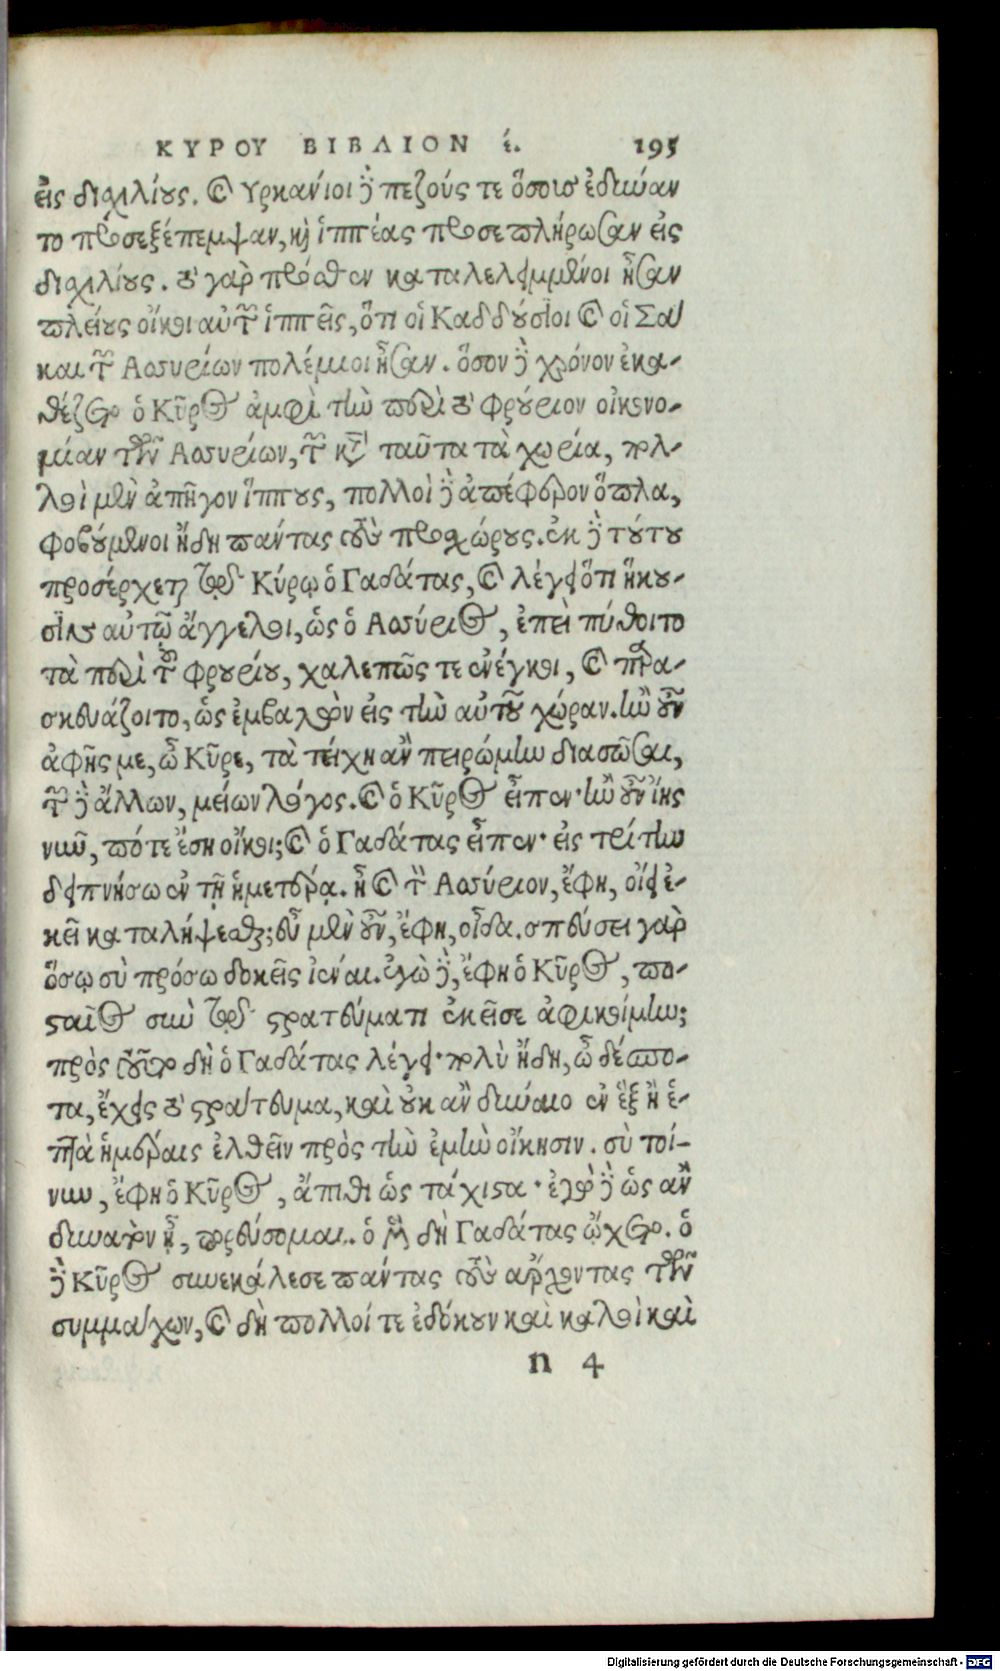 ΚΥΡΟΥ ΒΙΒΛΙΟΝ έ. 195
εἰς διχιλίους. καὶ Υρκανίοι δὲ πεζούς τε ὅσοις ἐδύναν
το προσεξέπεμψαν, καὶ ἱππέας προσεπλήρωσαν εἰς
διχιλίους. τὸ γὰρ πρόσθεν καταλελειμμένοι ἦσαν
πλείους οἴκοι αὐτῶν ἱππεῖς, ὅτι οἱ Καδδούσιοι καὶ οἱ Σά
και τῶν Ασσυρίων πολέμιοι ἦσαν. ὅσον δὲ χρόνον ἐκα-
θέζετο ὁ Κῦρος ἀμφὶ τὴν περὶ τὸ φρούριον οἰκονο-
μίαν τῶν Ασσυρίων, τῶν κατὰ ταῦτα τὰ χωρία, πολ-
λοὶ μὲν ἀπῆγον ἵππους, πολλοὶ δὲ ἀπέφερον ὅπλα,
φοβούμενοι ἤδη πάντας τοὺς προσχώρους. ἐκ δὲ τούτου
προσέρχεται τῷ Κύρῳ ὁ Γαδάτας, καὶ λέγει ὅτι ἥκου-
σιν αὐτῷ ἄγγελοι, ὡς ὁ Ασσύριος, ἐπεὶ πύθοιτο
τὰ περὶ τοῦ φρουρίου, χαλεπῶς τε ἐνέγκοι, καὶ παρα-
σκευάζοιτο, ὡς ἐμβαλῶν εἰς τὴν αὐτοῦ χώραν. ἢν οὖν
ἀφῇς με, ὦ Κῦρε, τὰ τείχη ἂν πειρώμην διασῶσαι,
τῶν δὲ ἄλλων, μείων λόγος. καὶ ὁ Κῦρος εἶπεν· ἢν οὖν ἴῃς
νῦν, πότε ἔσῃ οἴκοι; καὶ ὁ Γαδάτας εἶπεν· εἰς τρίτην
δειπνήσω ἐν τῇ ἡμετέρᾳ. ἦ καὶ τὸν Ασσύριον, ἔφη, οἴει ἐ-
κεῖ καταλήψεσθαι; εὖ μὲν οὖν, ἔφη, οἶδα. σπεύσει γὰρ
ὅσῳ σὺ πρόσω δοκεῖς ἰέναι. ἐγὼ δὲ, ἔφη ὁ Κῦρος, πο-
σταῖος σὺν τῷ στρατεύματι ἐκεῖσε ἀφικοίμην;
πρὸς τοῦτο δὴ ὁ Γαδάτας λέγει· πολὺ ἤδη, ὦ δέσπο-
τα, ἔχεις τὸ στράτευμα, καὶ οὐκ ἂν δύναιο ἐν ἓξ ἢ ἑ-
πτὰ ἡμέραις ἐλθεῖν πρὸς τὴν ἐμὴν οἴκησιν. σὺ τοί-
νυν, ἔφη ὁ Κῦρος, ἄπιθι ὡς τάχιστα· ἐγὼ δὲ ὡς ἂν
δυνατὸν ᾖ, πορεύσομαι. ὁ μὲν δὴ Γαδάτας ᾤχετο. ὁ
δὲ Κῦρος συνεκάλεσε πάντας τοὺς ἄρχοντας τῶν
συμμάχων, καὶ δὴ πολλοί τε ἐδόκουν καὶ καλοὶ καὶ
n 4
Digitalisierung gefördert durch die Deutsche Forschungsgemeinschaft - DFG